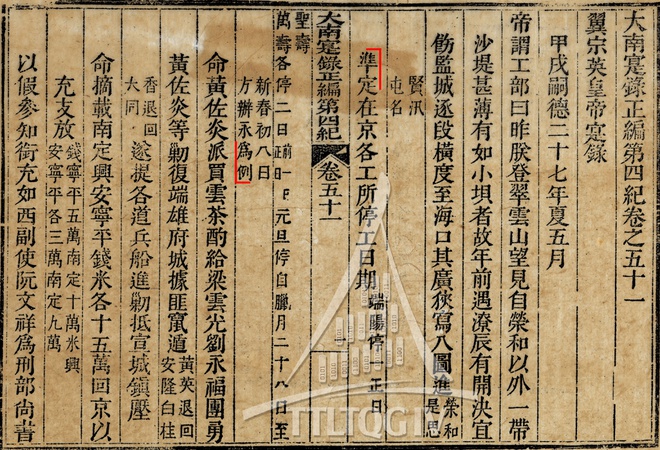 大南寔錄正編第四紀卷之五十一
翼宗英皇帝寔錄
甲戌嗣德二十七年夏五月
帝謂工部曰昨朕登翠雲山望見自榮和以外一帶
沙堤甚薄有如小垻者故年前遇潦辰有開決宜
飭監城逐段橫度至海口其廣狹寫八圖進榮和是思
賢汛
屯名
準定在京各工所停工日期端陽停正日
大南寔錄正編第四紀 卷五十一
聖壽
萬壽各停二日前一日正日元旦停自臘月二十八日至
新春初八日
方辦永爲例
命黃佐炎派買雲茶酌給梁雲光劉永福團勇
黃佐炎等勦復端雄府城據匪竄遁黃英退回安隆白柱
香退回
大同
遂提各道兵船進勦抵宣城鎮壓
命摘載南定興安寧平錢米各十五萬回京以
充支放錢寧平五萬南定十萬米興安寧平各三萬南定九萬
以假參知銜充如西副使阮文祥爲刑部尚書
TTLTQG IV